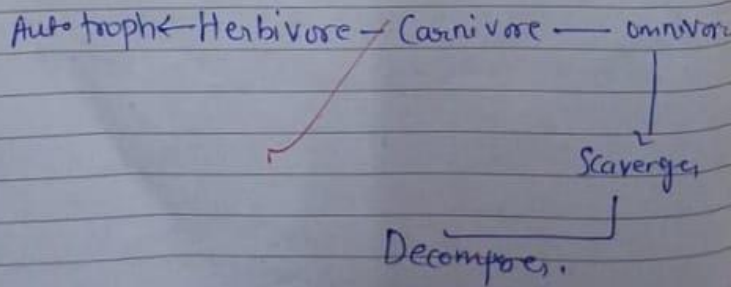 Autotroph ← Herbivore – Carnivore — omnivor
Scavenger
Decomposer.